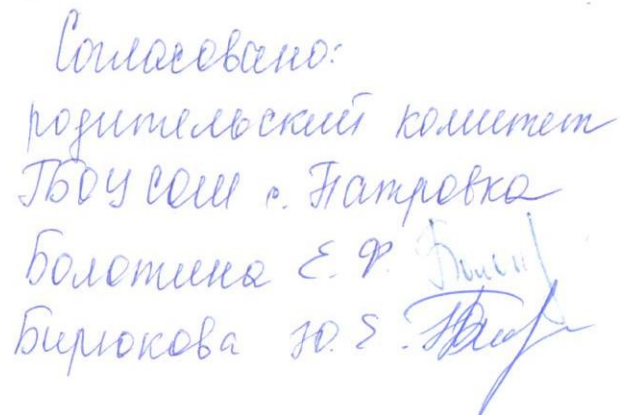 Согласовано:
родительский комитет
ГБОУ СОШ с. Патровка
Болотина Е. Ф.
Бирюкова Ю. Е.